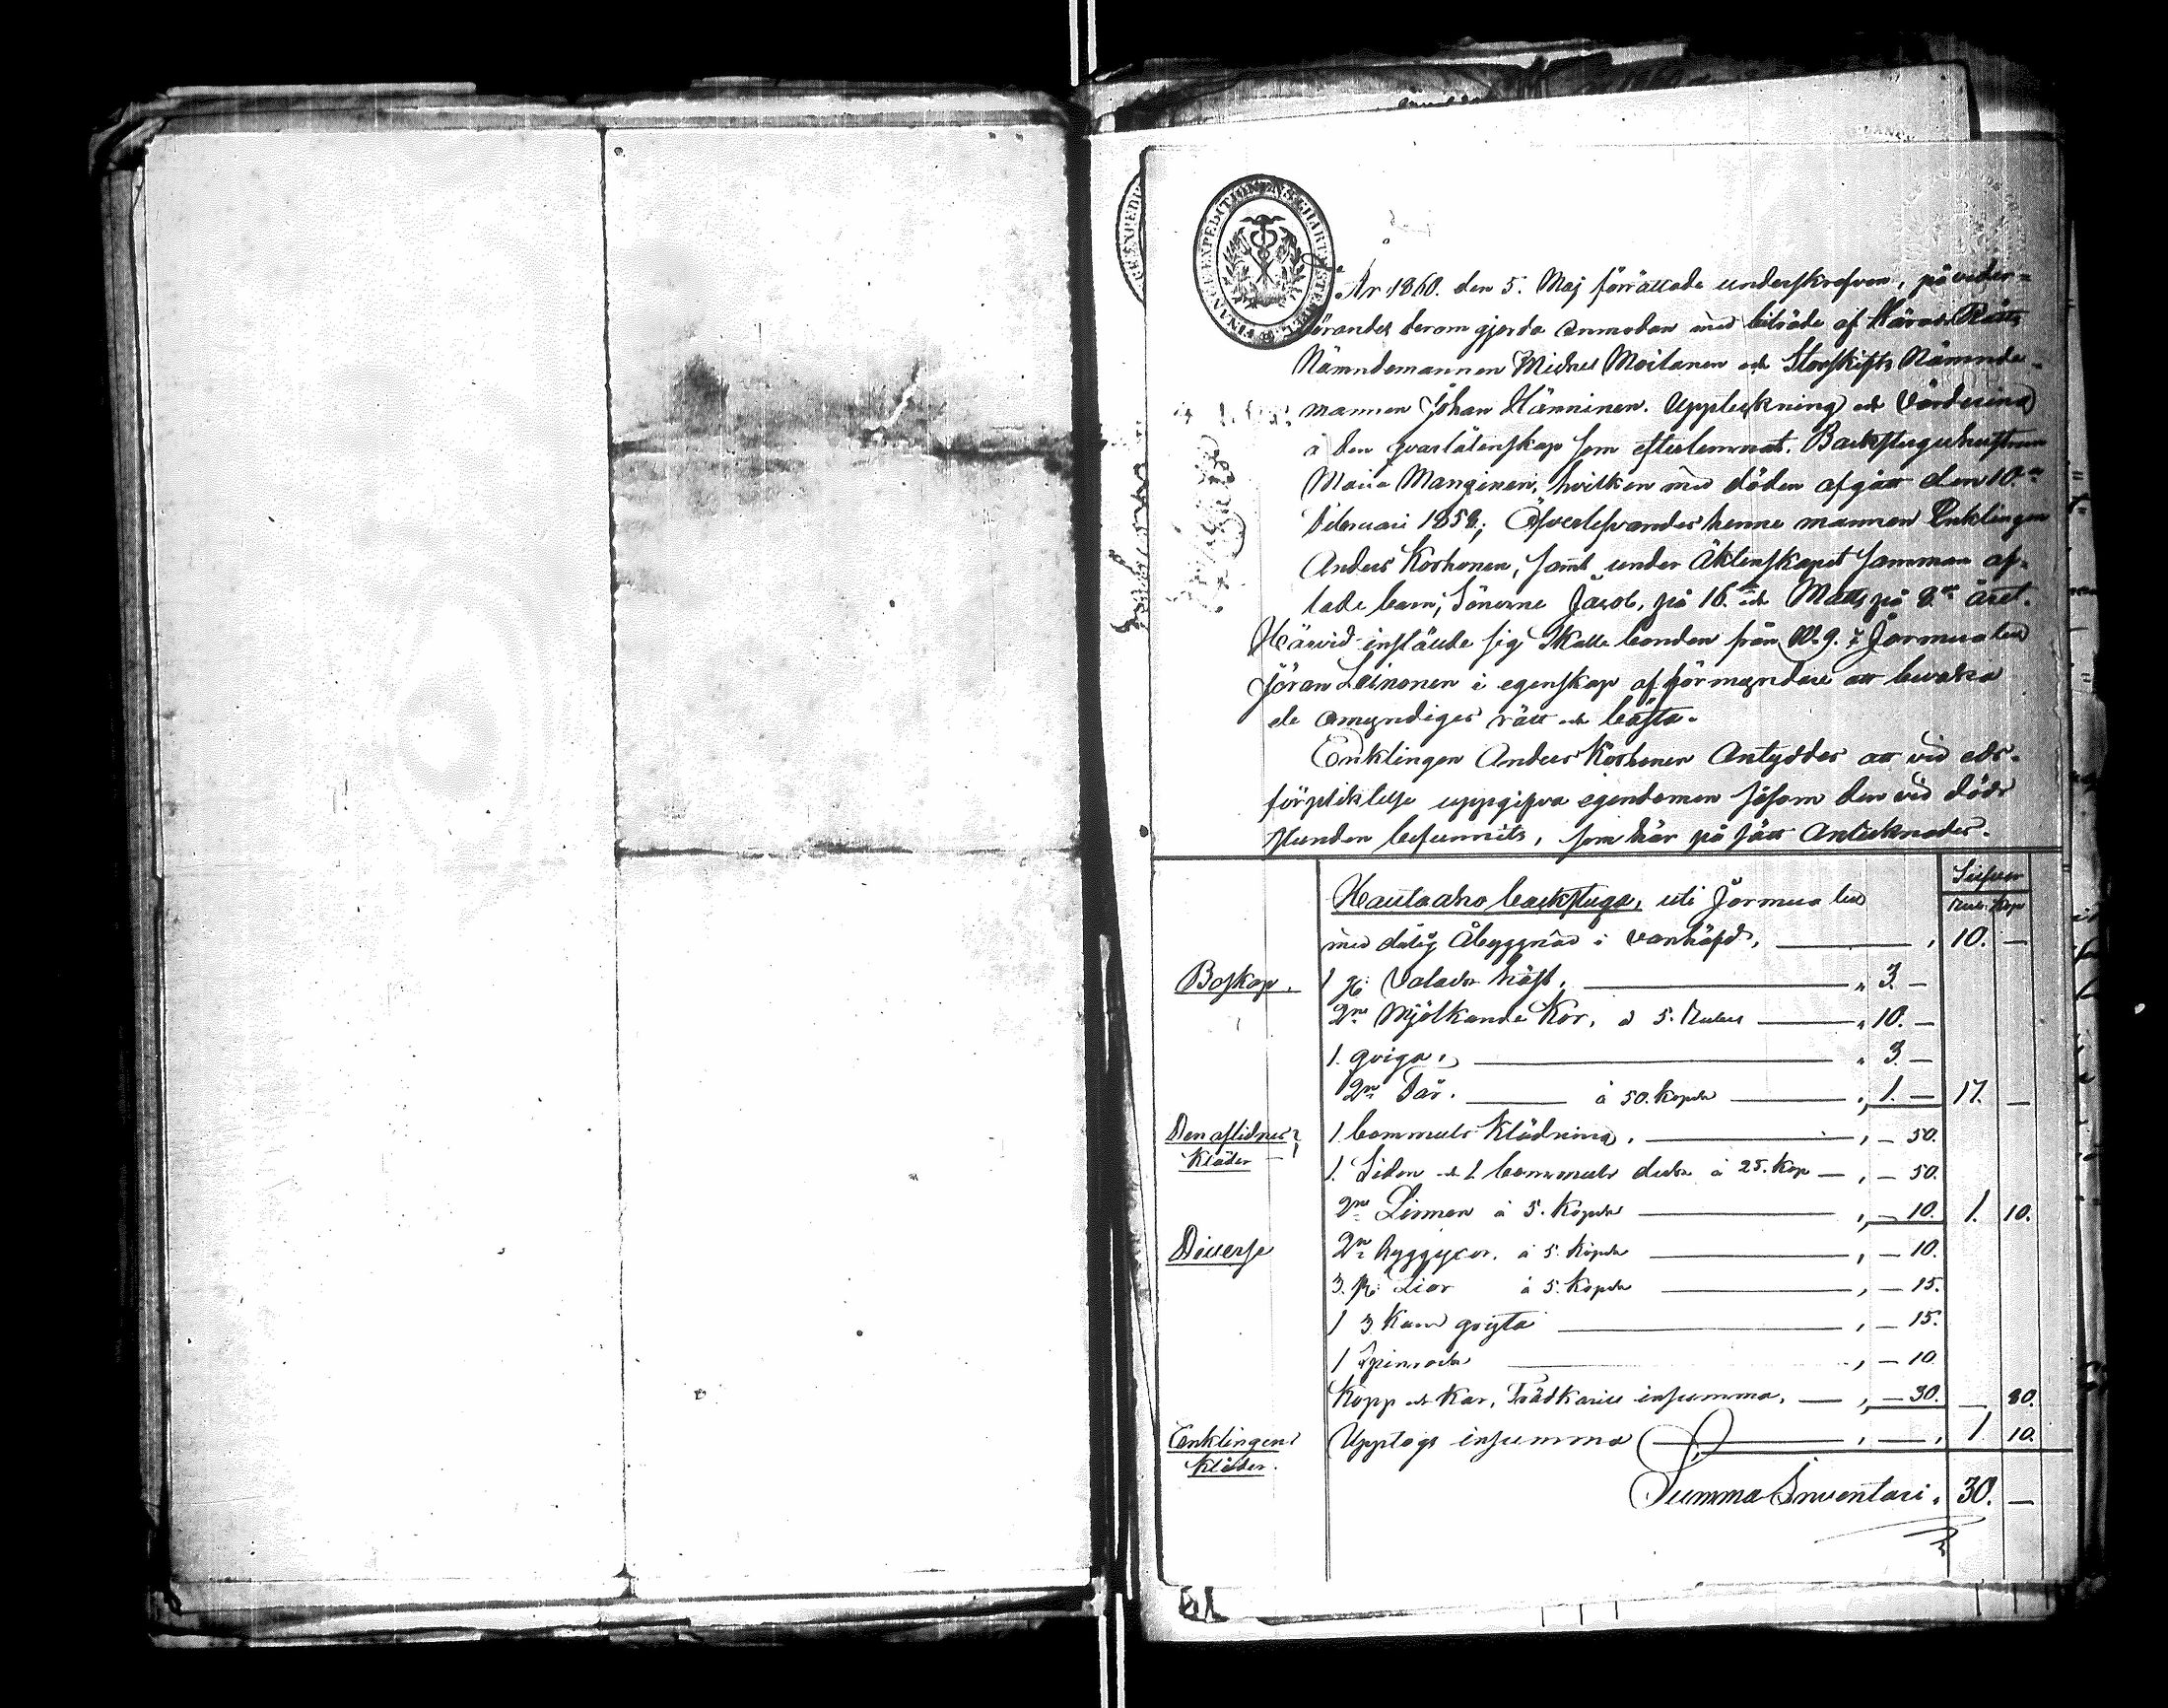 FINANCE EXPEDITIONENS CHARTÆ STEMPEL
År 1860. den 5. Maj förrättade underskrefven, på veder-
börandes derom gjorda anmodan med biträde af Härads Rätts
Nämndemannen Michel Moilanen och Storskifts Nämnde-
mannen Johan Hänninen. Uppteckning och Värdering
å den qvarlåtenskap som efterlemnat. Backstuguhustrun
Maria Manginen, hvilken med döden afgått den 10de
Februari 1858; Öfverlefvandes henne mannen Enklingen
Anders Korhonen, samt under Äktenskapet samman af-
lade barn; Sönerne Jacob, på 16de och Matts på 8de året.
Härvid inställde sig Skatte bonden från No 9. i Jormua by
Jöran Leinonen i egenskap af förmyndare att bevaka
de omyndiges rätt och bästa.
Enklingen Anders Korhonen Antyddes att vid eds-
förpliktelse uppgifva egendomen såsom den vid döds
stunden befunnits, som här på sätt Antecknades.
Silfver
Rub. Kop
Hautaaho backstuga, uti Jormua by
med dålig Åbyggnad i vanhäfd, 10. —
Boskap. 1 st: Valack häst, " 3. —
2ne Mjölkande Kor, à 5. Rubel " 10. —
1. qviga, " 3. —
2ne Får. à 50. Kopek " 1. — 17. —
Den aflidnes Kläder
1 bommuls Klädning, " — 50.
1. Siden och 1 bommuls duk à 25. Kop — " — 50.
2ne Linnen à 5. Kopek " — 10. 1. 10.
Diverse 2ne à 5. Kopek " — 10.
3. st: Liar à 5. Kopek " — 15.
1 3 Kanns gryta " — 15.
1 Spinrock " — 10
Kopp och Kar, Trädkärill insumma, — " — 30. — 80.
Enklingens Kläder.
Upptogs insumma " — " 1 10.
Summa Inventari " 30. —